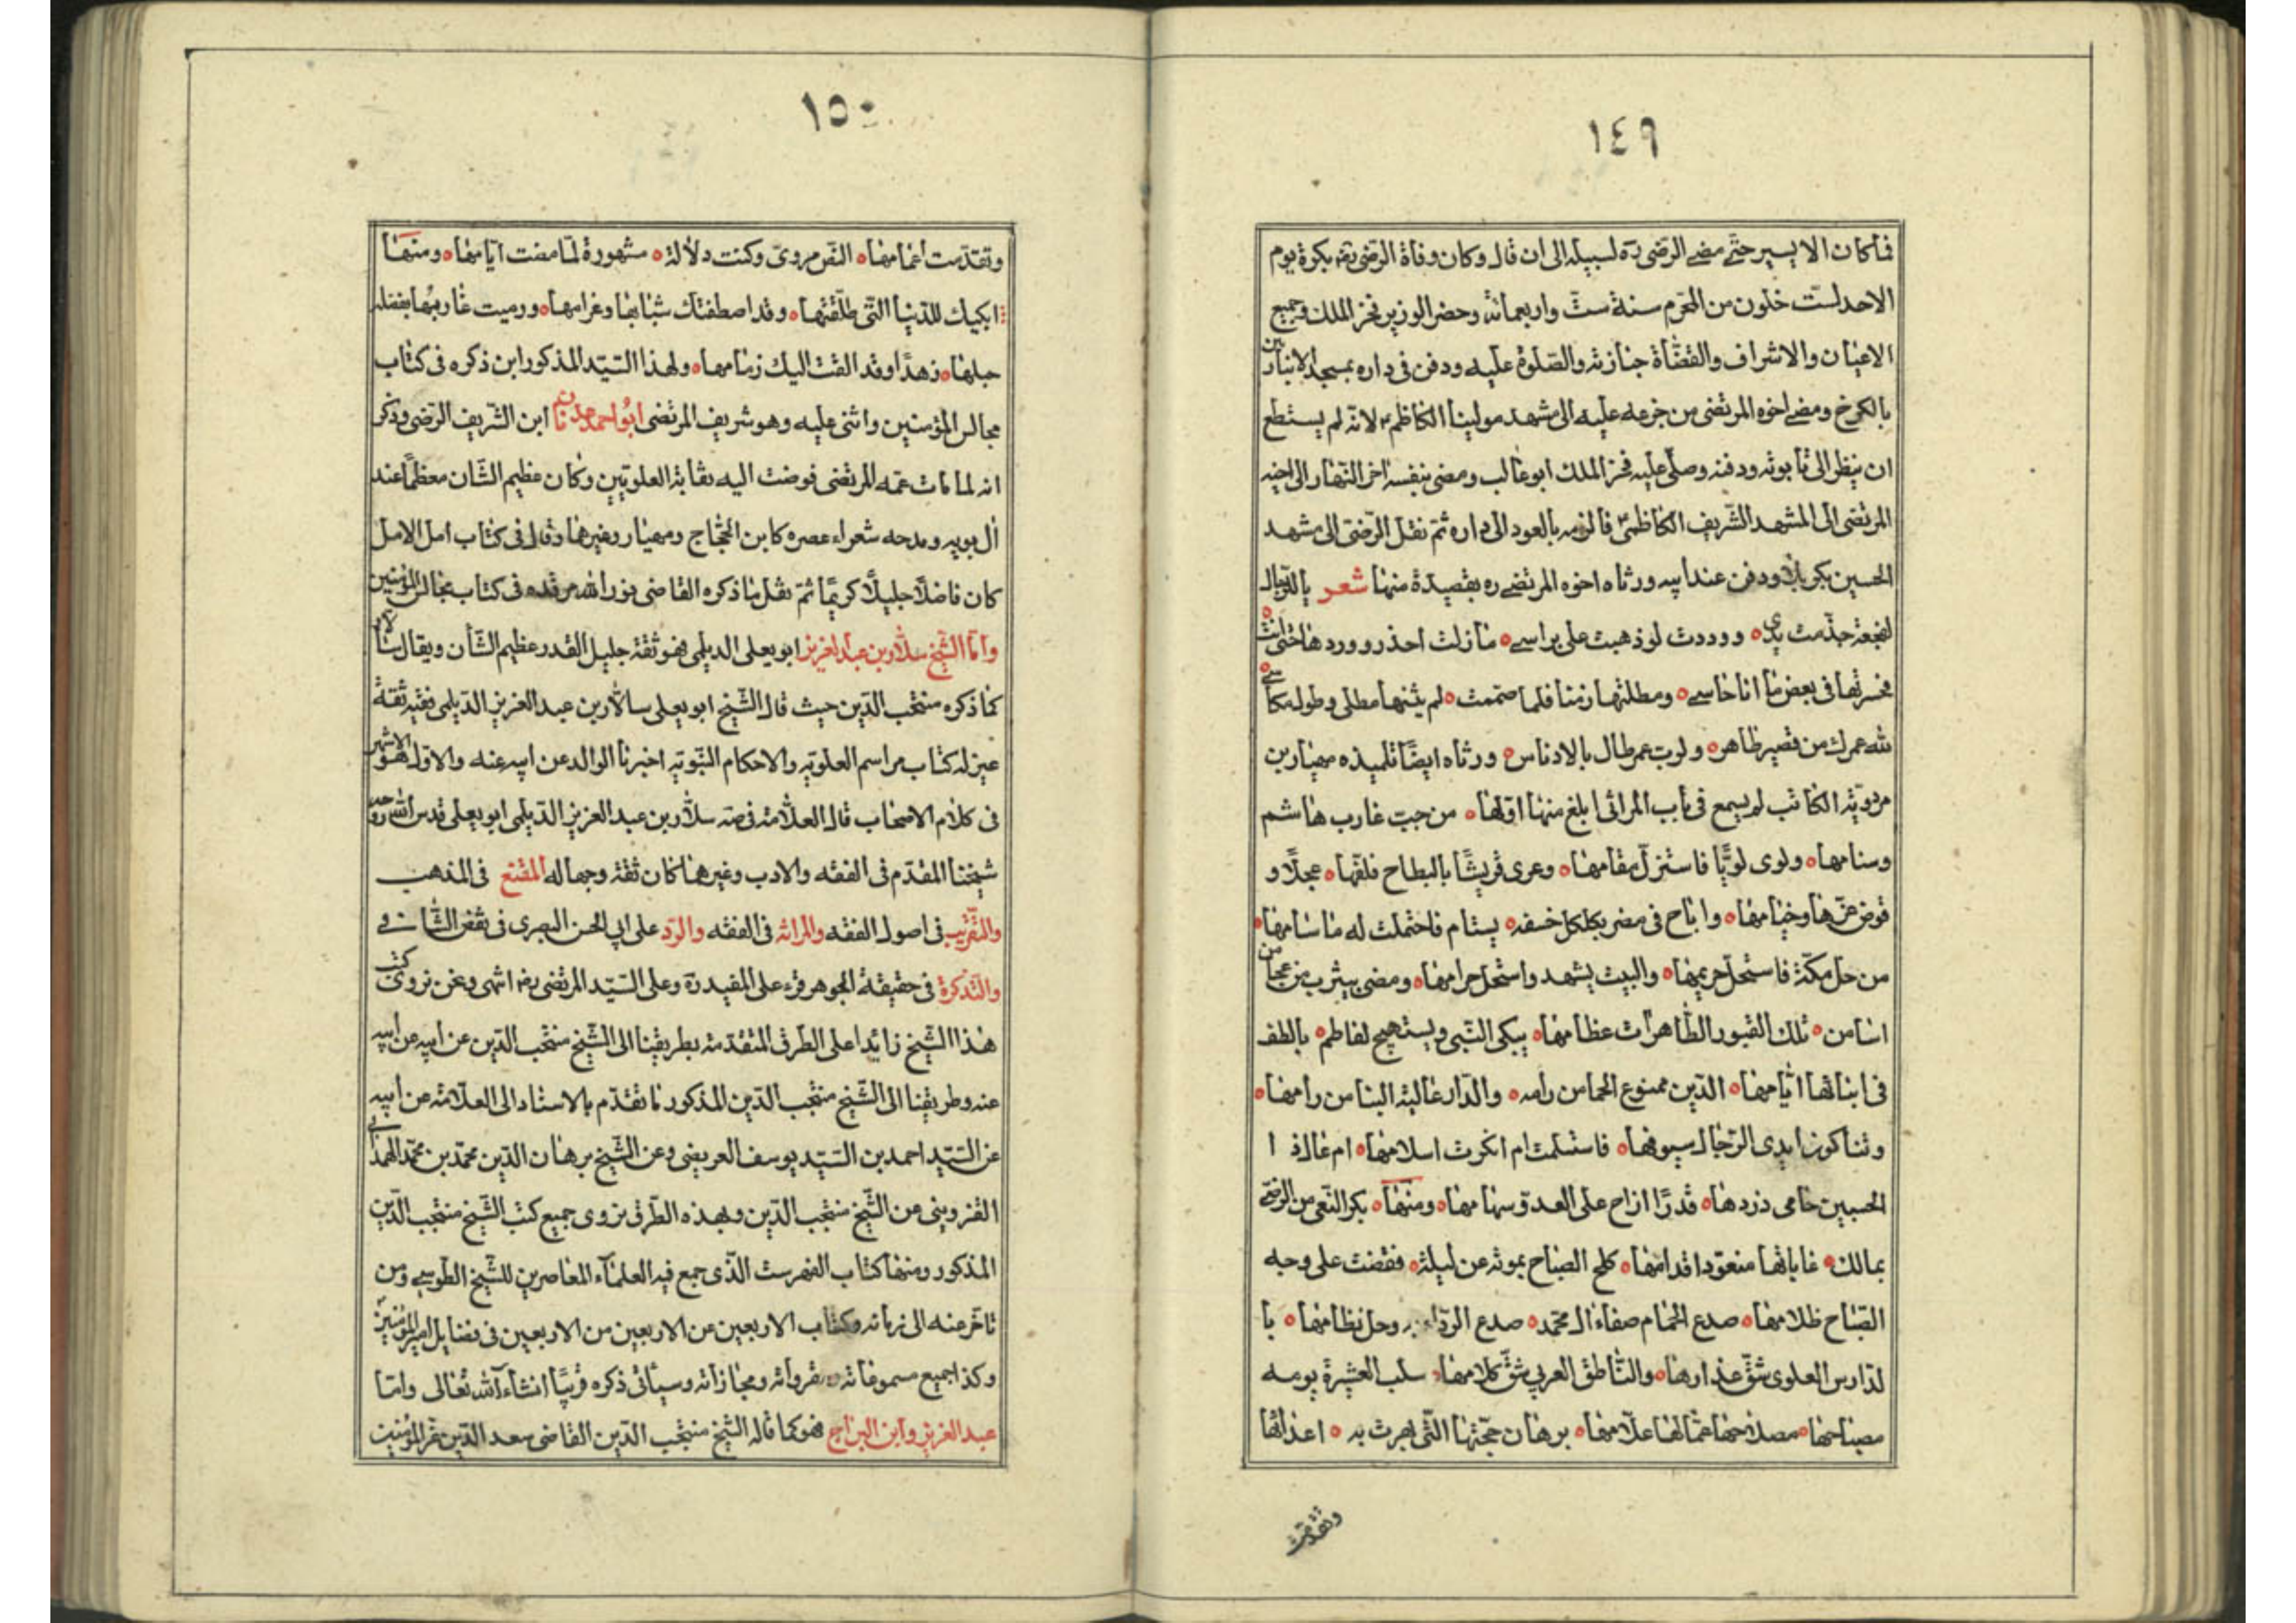 ١٤٩
فما كان الا يسير حتى مضى الرضى ره لسبيله الى ان قال وكان وفاة الرضى بكرة يوم
الاحد لست خلون من المحرم سنة ست واربعمائة وحضر الوزير فخر الملك وجميع
الاعيان والاشراف والقضاة جنازته والصلوة عليه ودفن فى داره بمسجد الانباريين
بالكرخ ومضى اخوه المرتضى من جزعه عليه الى مشهد مولينا الكاظم لانه لم يستطع
ان ينظر الى تابوته ودفنه وصلى عليه فخر الملك ابو غالب ومضى بنفسه اخر النهار الى اخيه
المرتضى الى المشهد الشريف الكاظمى فالزمه بالعود الى داره ثم نقل الرضى الى مشهد
الحسين بكربلا ودفن عند ابيه ورثاه اخوه المرتضى ره بقصيدة منها شعر يا للرجال
لفجعة جذمت يدى ووددت لو ذهبت على براسى مازلت احذر وردها حتى اتت
فحسرتها فى بعض ما انا حاسى ومطلتها زمنا فلما صممت لم يثنها مطلى وطول مكاسى
لله عمرك من قصير طاهر ولرب عمر طال بالادناس ورثاه ايضا تلميذه مهيار بن
مردويه الكاتب لم يسمع فى باب المراثى ابلغ منها اولها من جب غارب هاشم
وسنامها ولوى لويا فاستزل مقامها وعرى قريشا بالبطاح فلفها عجلا و
قوض عزها وخيامها واباح فى مضر بكلكل خسفه يستام فاحتملت له ما سامها
من حل مكة فاستحل حريمها والبيت يشهد واستحل حرامها ومضى بيثرب مزعجا من
اشا من تلك القبور الطاهرات عظامها يبكى النبى ويستهيج لفاطم بالطف
فى ابنائها ايامها الدين ممنوع الحما من رامه والدار عالية البنا من رامها
وتناكرت ايدى الرجال سيوفها فاستسلمت ام انكرت اسلامها ام غال ذا
الحسبين حامى ذودها قدرا ازاح على العدو سهامها ومنها بكر النعى من الرضى
بمالك غاياتها متعود اقدامها كلح الصباح بموته عن ليلة فقضت على وجه
الصباح ظلامها صدع الحمام صفاة ال محمد صدع الرداء به وحل نظامها با
لدارس العلوى شق غدارها والناطق العربى شق كلامها سلب العشيرة يومه
مصباحها مصلاحها عمالها علامها برهان حجتها التى بهرت به اعدائها
وتقدمت
١٥٠
وتقدمت اعمامها النفر مروى وكنت دلالة مشهورة لما مضت ايامها ومنها
ابكيك للدنيا التى طلقتها وقد اصطفتك شبابها وغرامها ورميت غاربها بفضلة
حبلها زهدا وقد القت اليك زمامها ولهذا السيد المذكور ابن ذكره فى كتاب
مجالس المؤمنين واثنى عليه وهو شريف المرتضى ابو احمد عدنان ابن الشريف الرضى وذكر
انه لما مات عمه المرتضى فوضت اليه نقابة العلويين وكان عظيم الشان معظما عند
ال بويه ومدحه شعراء عصره كابن الحجاج ومهيار وغيرهما وقال فى كتاب امل الامل
كان فاضلا جليلا كريما ثم نقل ما ذكره القاضى نور الله مرقده فى كتاب مجالس المؤمنين
واما الشيخ سلار بن عبد العزيز ابو يعلى الديلمى فهو ثقة جليل القدر عظيم الشأن ويقال سالار
كما ذكره منتجب الدين حيث قال الشيخ ابو يعلى سالار بن عبد العزيز الديلمى فقيه ثقة
عين له كتاب مراسم العلوية والاحكام النبوية اخبرنا الوالد عن ابيه عنه والاول هو الاشهر
فى كلام الاصحاب قال العلامة فى صه سلار بن عبد العزيز الديلمى ابو يعلى قدس الله روحه
شيخنا المقدم فى الفقه والادب وغيرهما كان ثقة وجها له المقنع فى المذهب
والتقريب فى اصول الفقه والمراثه فى الفقه والرد على ابى الحسن البصرى فى نقض الشافى
والتذكرة فى حقيقة الجوهر قرء على المفيد ره وعلى السيد المرتضى ره انتهى ونحن نروى كتب
هذا الشيخ زائدا على الطرق المتقدمة بطريقنا الى الشيخ منتجب الدين عن ابيه عن ابيه
عنه وطريقنا الى الشيخ منتجب الدين المذكور ما تقدم بالاسناد الى العلامة عن ابيه
عن السيد احمد بن السيد يوسف العريضى وعن الشيخ برهان الدين محمد بن محمد الهمدانى
القزوينى عن الشيخ منتجب الدين وبهذه الطرق نروى جميع كتب الشيخ منتجب الدين
المذكور ومنها كتاب الفهرست الذى جمع فيه العلماء المعاصرين للشيخ الطوسى ومن
تاخر عنه الى زمانه وكتاب الاربعين عن الاربعين من الاربعين فى فضايل امير المؤمنين
وكذا جميع مسموعاته ومقرواته ومجازاته وسيأتى ذكره قريبا انشاء الله تعالى واما
عبد العزيز وابن البراج فهو كما قاله الشيخ منتجب الدين القاضى سعد الدين عز المؤمنين